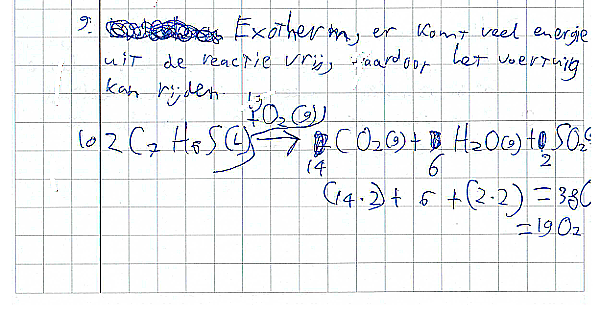 9. Exotherm, er komt veel energie
uit de reactie vrij, waardoor het voertuig
kan rijden.
19
+O2(g)
10 2 C7 H6S(l) → CO2(g) + H2O(g) + SO2(
14 6 2
(14.2) + 6 + (2.2) = 38(
= 19O2